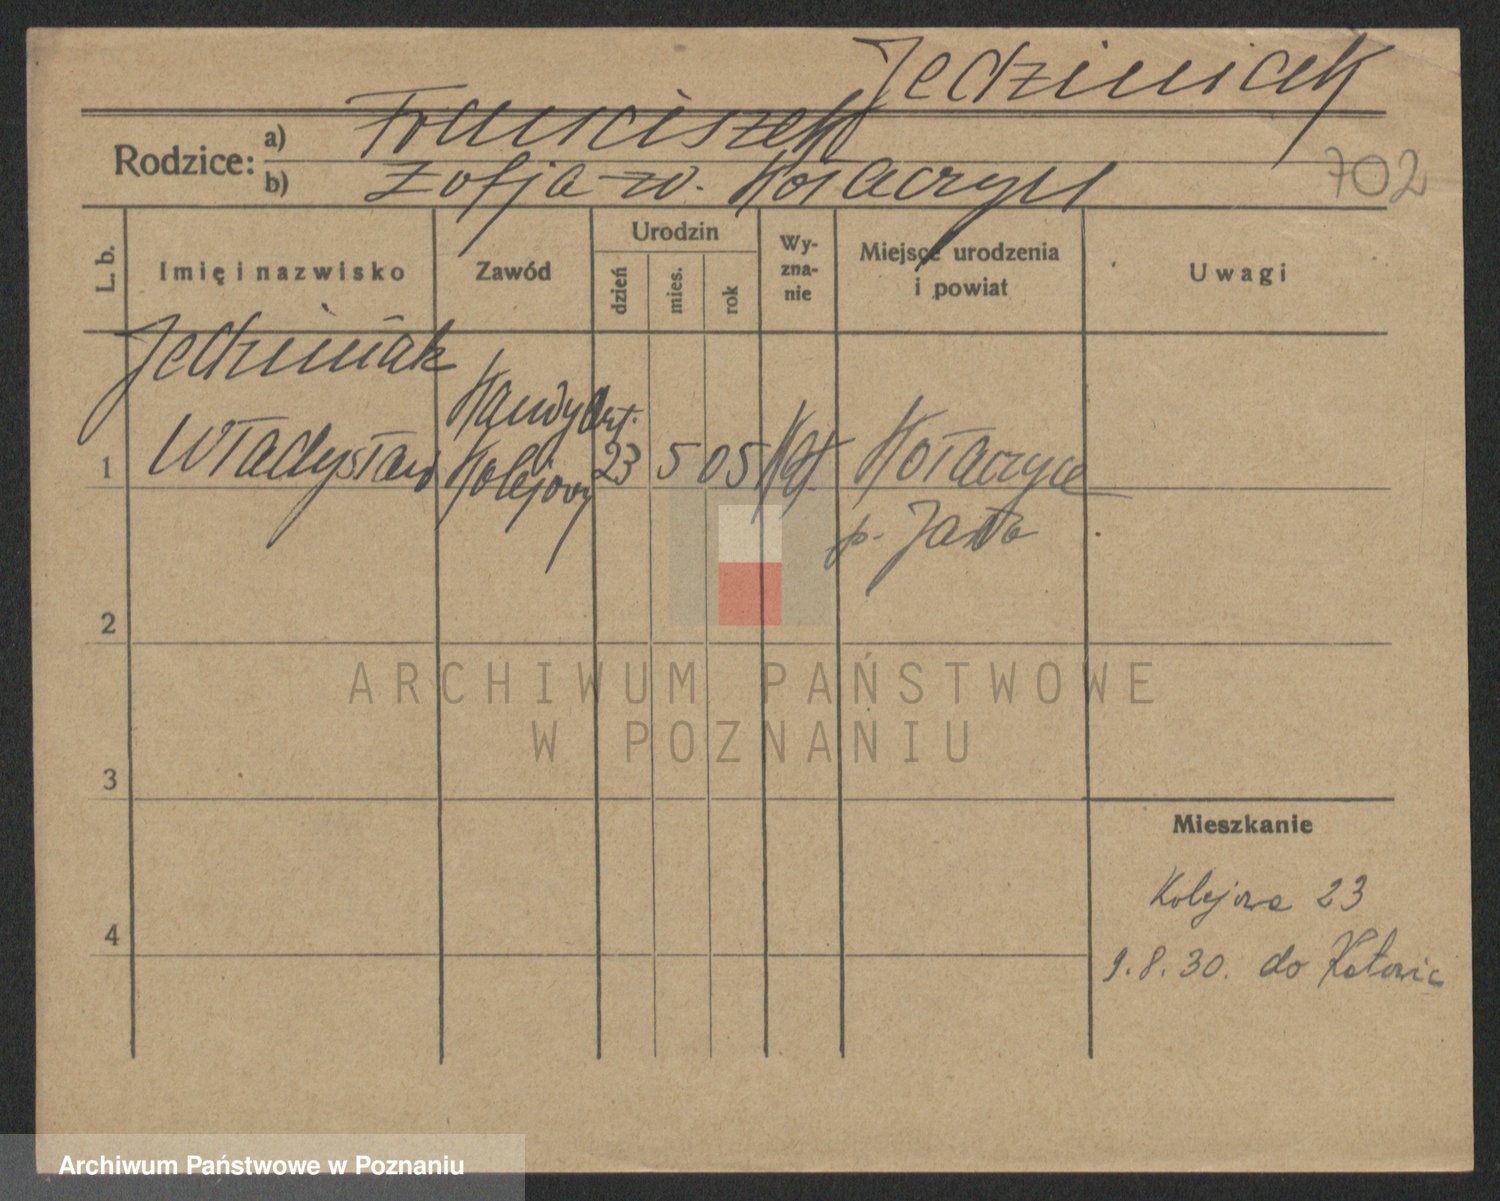 Jedziniak
Rodzice:
a) Franciszek
b) Zofja z d. Kołaczyn
702
L. b.
Imię i nazwisko
Zawód
Urodzin
dzień
mies.
rok
Wy-
zna-
nie
Miejsce urodzenia
i powiat
Uwagi
Jedziniak
1 Władysław
Kandydat.
Kolejowy
23 5 05 Kat
Kołaczyce
p. Jasło
2
3
4
Mieszkanie
Kolejowa 23
9.8.30. do Katowic
ARCHIWUM PAŃSTWOWE
W POZNANIU
Archiwum Państwowe w Poznaniu